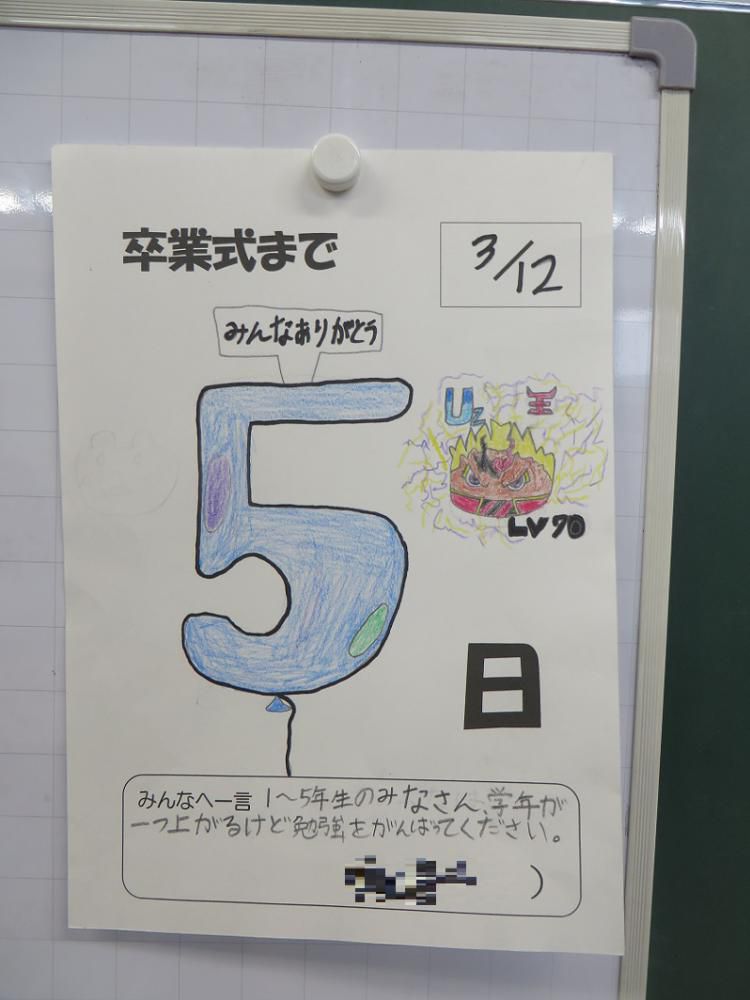 卒業式まで
3/12
みんなありがとう
5
Uz 王
LV70
日
みんなへ一言 1～5年生のみなさん、学年が
一つ上がるけど勉強をがんばってください。
)